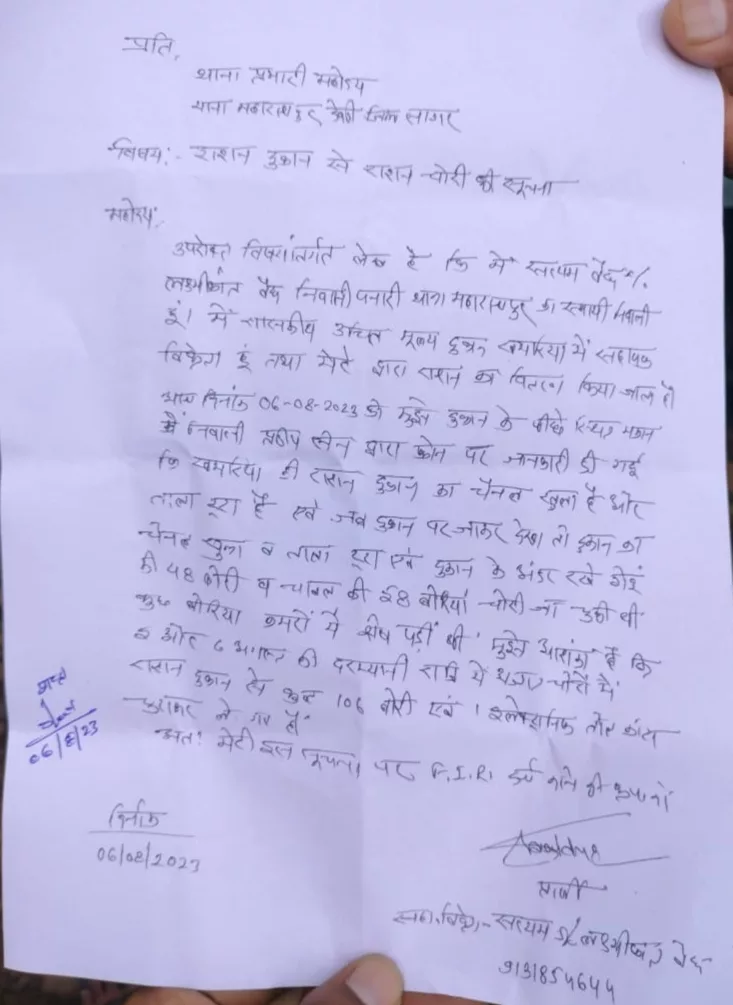 प्रति,
थाना प्रभारी महोदय
थाना महाराजपुर जिला सागर
विषय:- राशन दुकान से राशन चोरी की सूचना
महोदय:-
उपरोक्त विषयांतर्गत लेख है कि मैं सत्यम वैद्य S/o
लक्ष्मीकांत वैद्य निवासी पनारी थाना महाराजपुर का स्थायी निवासी
हूं। मैं शासकीय उचित मूल्य दुकान खमरिया में सहायक
विक्रेता हूं तथा मेरे द्वारा राशन का वितरण किया जाता है।
आज दिनांक 06-08-2023 को मुझे दुकान के पीछे स्थित मकान
में निवासी प्रदीप सेन द्वारा फोन पर जानकारी दी गई
कि खमरिया की राशन दुकान का चैनल खुला है और
ताला टूटा है एवं जब दुकान पर जाकर देखा तो दुकान का
चैनल खुला व ताला टूटा एवं दुकान के अंदर रखे गेहूं
की 48 बोरी व चावल की 58 बोरियां चोरी जा चुकी थी
कुछ बोरिया कमरों में शेष पड़ी थी। मुझे आशंका है कि
5 और 6 अगस्त की दरम्यानी रात्रि में अज्ञात चोरों ने
राशन दुकान से कुल 106 बोरी एवं 1 इलेक्ट्रानिक तौल कांटा
चुराकर ले गए हैं
अतः मेरी इस सूचना पर F.I.R. दर्ज करने की कृपा करें
06/8/23
दिनांक
06/08/2023
प्रार्थी
सहा. विक्रेता - सत्यम S/o लक्ष्मीकांत वैद्य
9131854644